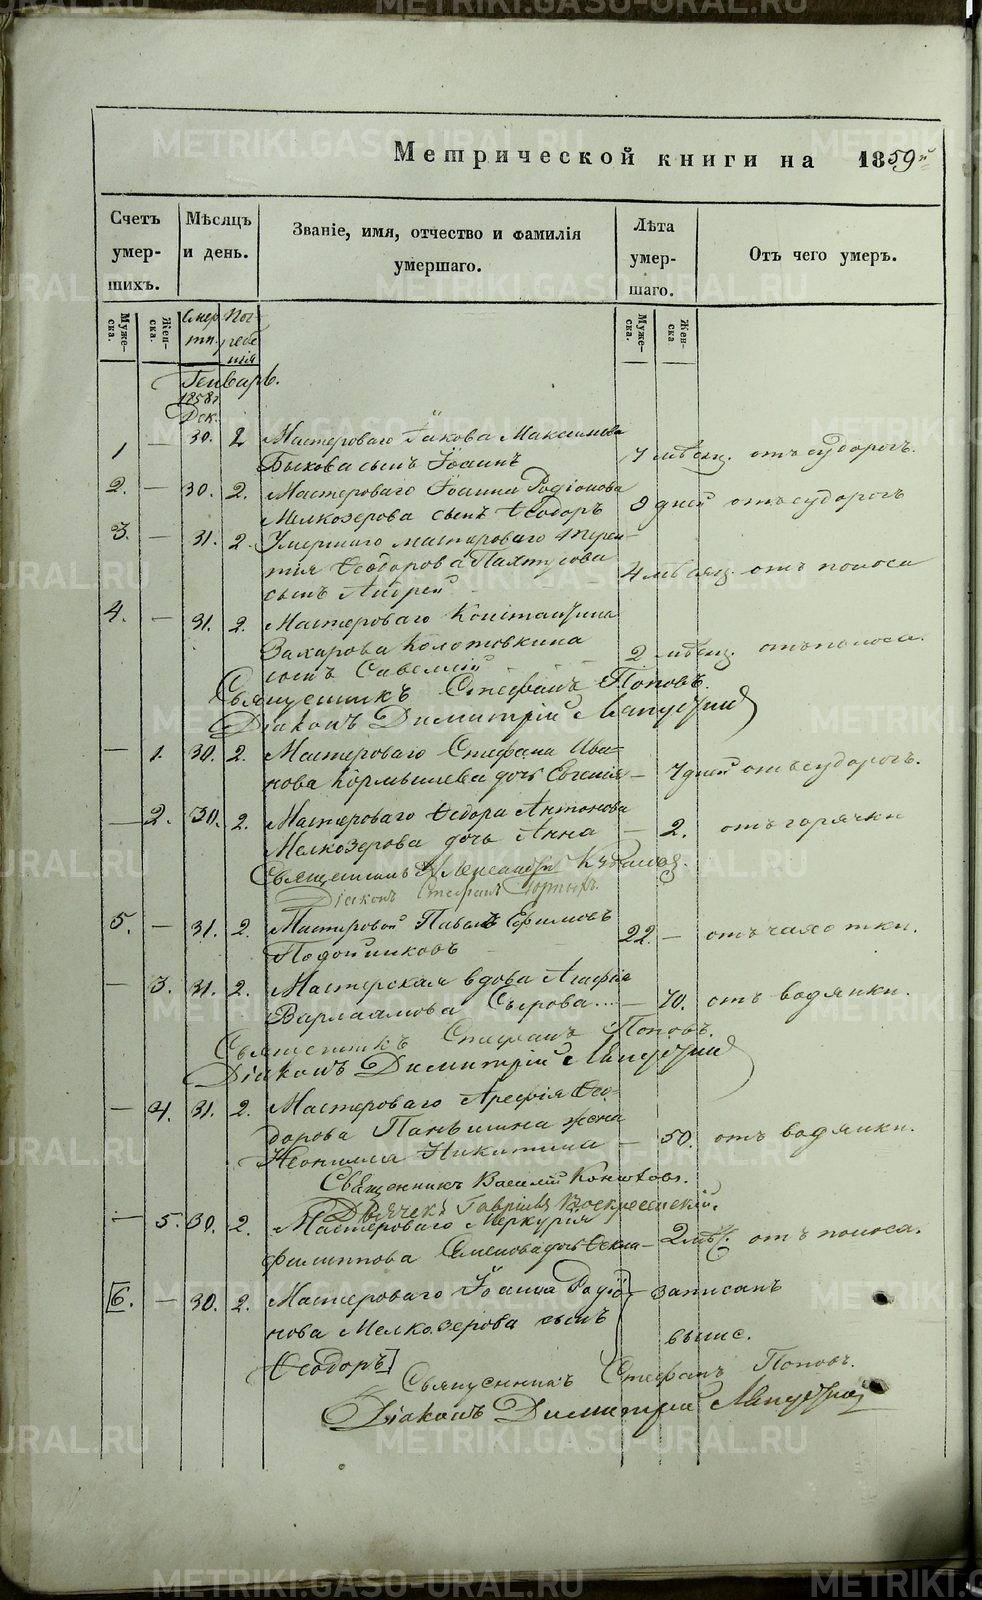 Метрической книги на 1859й
Счетъ умер- шихъ.
Мѣсяцъ и день.
Званіе, имя, отчество и фамилія умершаго.
Лѣта умер- шаго.
Отъ чего умеръ.
Муже- ска.
Жен- ска.
Смер ти.
Пог- ребе нія
Муже- ска.
Жен- ска
Генварь.
1858г.
Дек.
1 — 30. 2 Мастероваго Іакова Максимова
Быкова сынъ Іоаннъ 7 мѣсяц. отъ судорогъ.
2. — 30. 2. Мастероваго Іоанна Родіонова
Мелкозерова сынъ Ѳеодоръ 9 дней отъ судорогъ
3. — 31. 2. Умершаго мастероваго Терен-
тія Ѳеодорова Пахтусова
сынъ Андрей 4 мѣсяц. отъ поноса
4. — 31. 2. Мастероваго Константина
Захарова Колотовкина
сынъ Савелій 2 мѣсяц. отъ поноса.
Священникъ Стефанъ Поповъ.
Діаконъ Димитрій
— 1. 30. 2. Мастероваго Стефана Ива-
нова Кормышева дочь Евгенія — 7 дней отъ судорогъ.
— 2. 30. 2. Мастероваго Ѳедора Антонова
Мелкозерова дочь Анна — 2. отъ горячки
Священникъ Александръ
Діаконъ Стефанъ
5. — 31. 2. Мастеровой Павелъ Ефимовъ
Подойниковъ 22. — отъ чахотки.
— 3. 31. 2. Мастерская вдова Агафія
Варлаамова Сырова... — 70. отъ водянки.
Священникъ Стефанъ Поповъ.
Діаконъ Димитрій
— 4. 31. 2. Мастероваго Арефія Ѳео-
дорова Паньшина жена
Неонилла Никитина — 50. отъ водянки.
Священникъ Василій Конюховъ.
Дьячекъ Гавріилъ Воскресенскій.
— 5. 30. 2. Мастероваго Меркурія
Филиппова Семенова дочь Ѳекла — 2 мѣс. отъ поноса.
[6. — 30. 2. Мастероваго Іоанна Родіо- } записанъ
нова Мелкозерова сынъ выше.
Ѳеодоръ]
Священникъ Стефанъ Поповъ.
Діаконъ Димитрій
METRIKI.GASO-URAL.RU